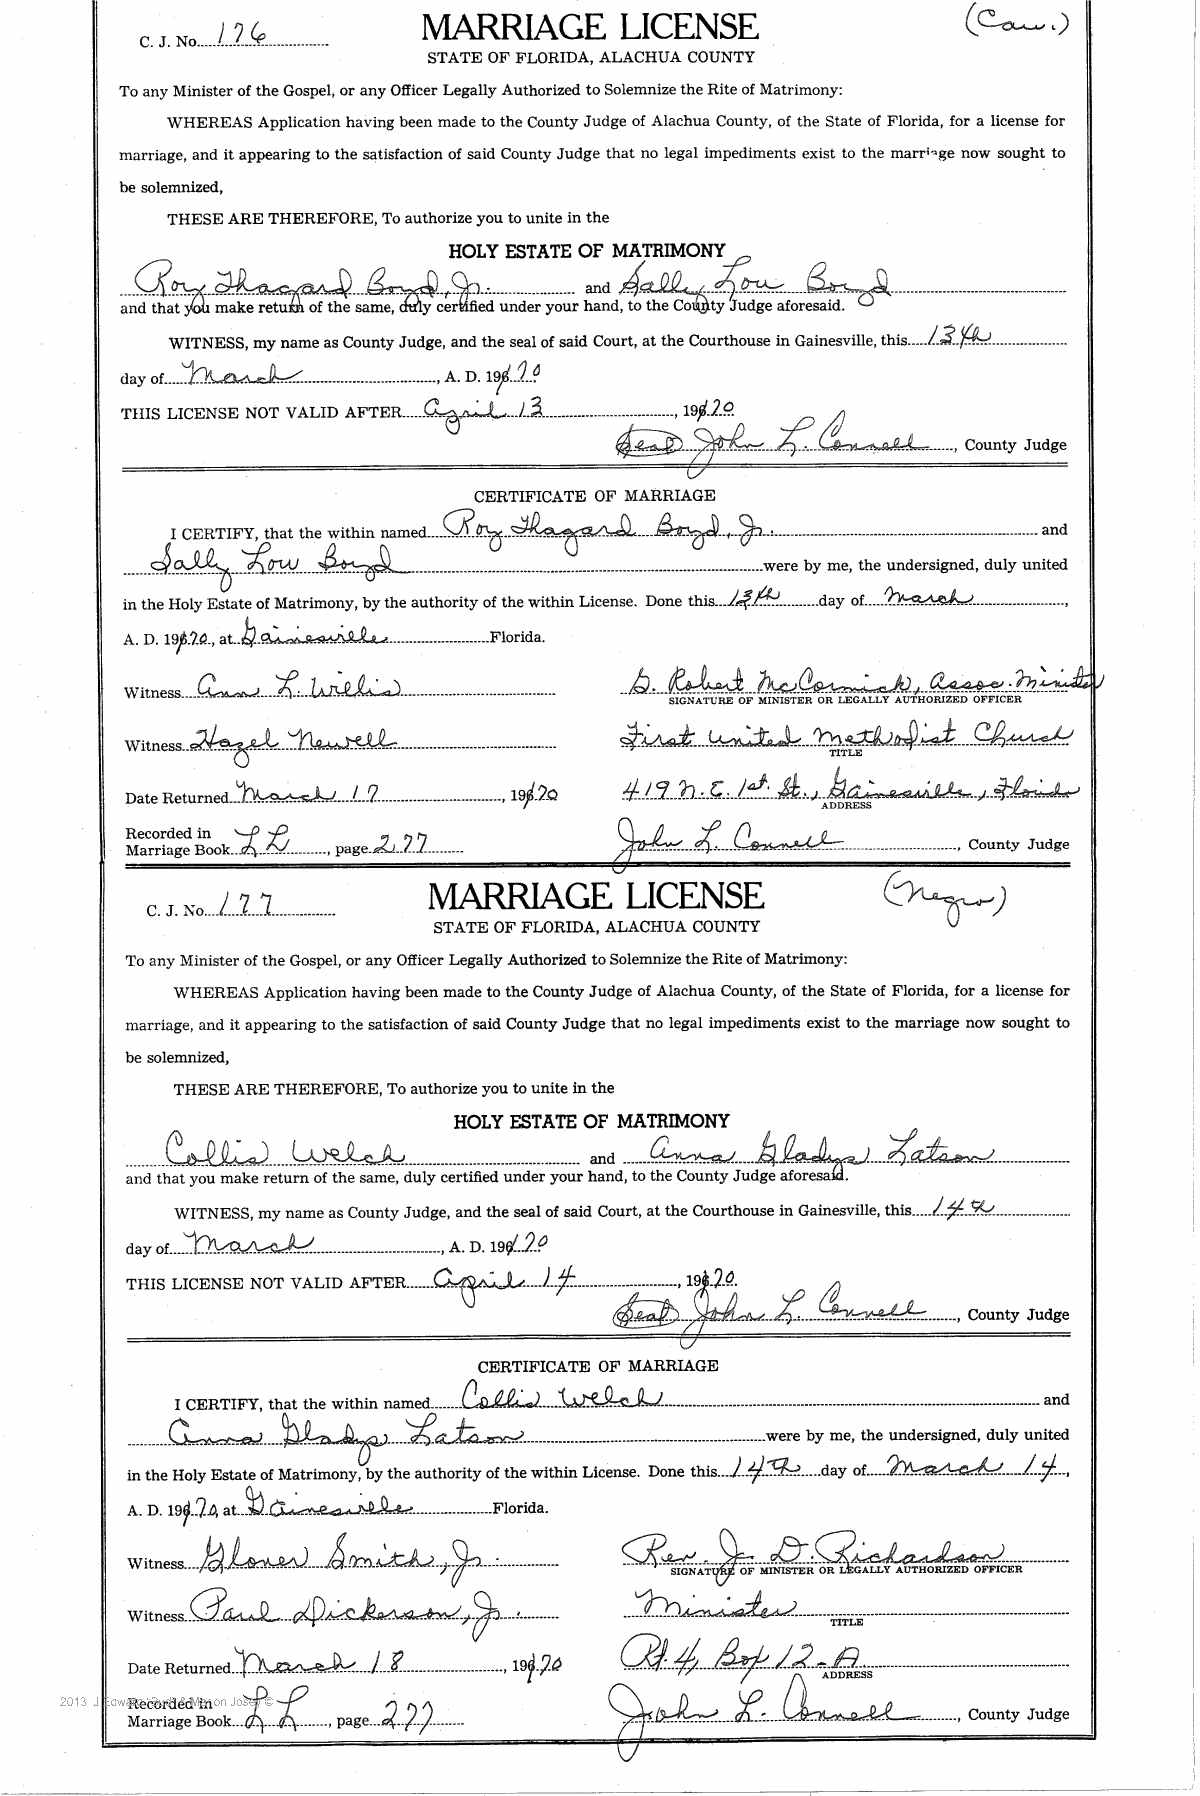 C. J. No. 176
MARRIAGE LICENSE
(Cau.)
STATE OF FLORIDA, ALACHUA COUNTY
To any Minister of the Gospel, or any Officer Legally Authorized to Solemnize the Rite of Matrimony:
WHEREAS Application having been made to the County Judge of Alachua County, of the State of Florida, for a license for
marriage, and it appearing to the satisfaction of said County Judge that no legal impediments exist to the marriage now sought to
be solemnized,
THESE ARE THEREFORE, To authorize you to unite in the
HOLY ESTATE OF MATRIMONY
Roy Thagard Boyd, Jr. and Sally Lou Boyd
and that you make return of the same, duly certified under your hand, to the County Judge aforesaid.
WITNESS, my name as County Judge, and the seal of said Court, at the Courthouse in Gainesville, this 13th
day of March, A. D. 1970
THIS LICENSE NOT VALID AFTER April 13, 1970
Seal John L. Connell, County Judge
CERTIFICATE OF MARRIAGE
I CERTIFY, that the within named Roy Thagard Boyd, Jr. and
Sally Lou Boyd were by me, the undersigned, duly united
in the Holy Estate of Matrimony, by the authority of the within License. Done this 13th day of March,
A. D. 1970, at Gainesville Florida.
Witness Ann L. Willis
G. Robert McCormick, Assoc. Minister
SIGNATURE OF MINISTER OR LEGALLY AUTHORIZED OFFICER
Witness Hazel Newell
First United Methodist Church
TITLE
Date Returned March 17, 1970
419 N.E. 1st. St., Gainesville, Florida
ADDRESS
Recorded in
Marriage Book LL, page 277
John L. Connell, County Judge
C. J. No. 177
MARRIAGE LICENSE
(Negro)
STATE OF FLORIDA, ALACHUA COUNTY
To any Minister of the Gospel, or any Officer Legally Authorized to Solemnize the Rite of Matrimony:
WHEREAS Application having been made to the County Judge of Alachua County, of the State of Florida, for a license for
marriage, and it appearing to the satisfaction of said County Judge that no legal impediments exist to the marriage now sought to
be solemnized,
THESE ARE THEREFORE, To authorize you to unite in the
HOLY ESTATE OF MATRIMONY
Collis Welch and Anna Gladys Latson
and that you make return of the same, duly certified under your hand, to the County Judge aforesaid.
WITNESS, my name as County Judge, and the seal of said Court, at the Courthouse in Gainesville, this 14th
day of March, A. D. 1970
THIS LICENSE NOT VALID AFTER April 14, 1970.
Seal John L. Connell, County Judge
CERTIFICATE OF MARRIAGE
I CERTIFY, that the within named Collis Welch and
Anna Gladys Latson were by me, the undersigned, duly united
in the Holy Estate of Matrimony, by the authority of the within License. Done this 14th day of March 14,
A. D. 1970, at Gainesville Florida.
Witness Glover Smith, Jr.
Rev. J. D. Richardson
SIGNATURE OF MINISTER OR LEGALLY AUTHORIZED OFFICER
Witness Paul Dickerson, Jr.
Minister
TITLE
Date Returned March 18, 1970
Rt. 4, Box 12-A
ADDRESS
2013 J
Recorded in
Marriage Book LL, page 277
John L. Connell, County Judge